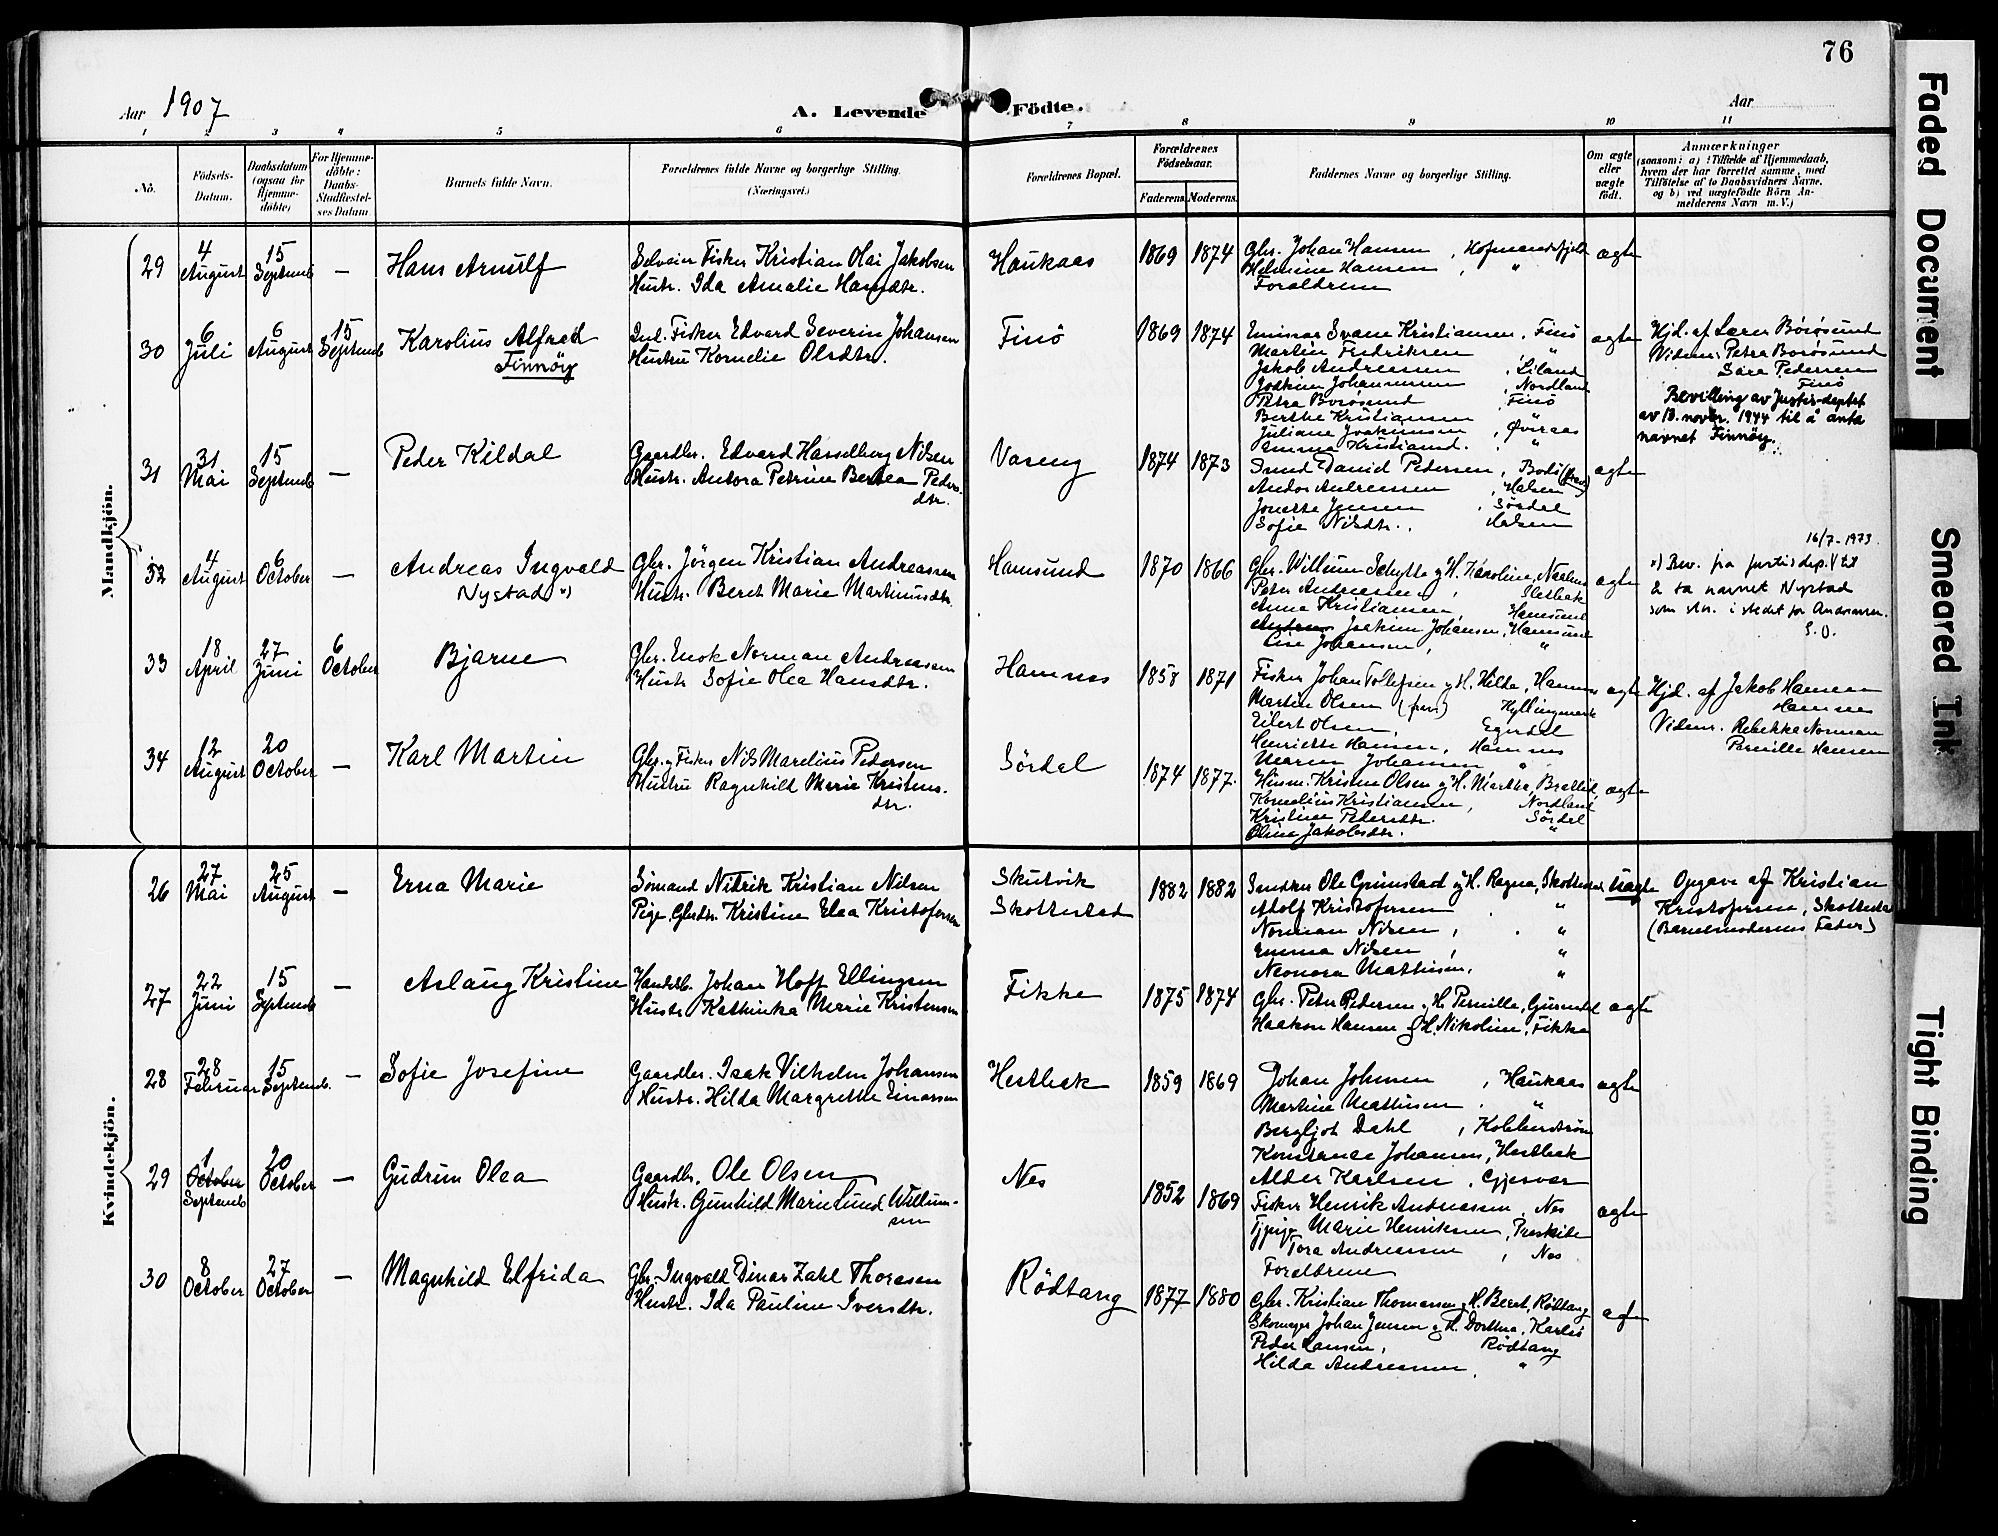 76
Aar 1907
A. Levende Födte.
Aar
1 2 3 4 5 6 7 8 9 10 11
No.
Födsels-
Datum.
Daabsdatum
(ogsaa for
Hjemme-
döbte)
For Hjemme-
döbte:
Daabs-
Stadfæstel-
ses Datum
Barnets fulde Navn.
Forældrenes fulde Navne og borgerlige Stilling.
(Næringsvei.)
Forældrenes Bopæl.
Forældrenes
Födselsaar.
Faderens.
Moderens.
Faddernes Navne og borgerlige Stilling.
Om ægte
eller
uægte
födt.
Anmærkninger
(saasom: a) i Tilfælde af Hjemmedaab,
hvem der har forrettet samme, med
Tilföielse af to Daabsvidners Navne,
og b) ved uægtefödte Börn An-
melderens Navn m. V.)
Mandkjön.
29
4
August
15
Septemb
—
Hans Arnulf
Selveier Fisker Kristian Olai Jakobsen
Hustr. Ida Amalie Hansdtr.
Haukaas
1869 1874
Gbr. Johan Hansen, Hofmandsfjeld
Helmine Hansen, "
Forældrene
ægte
30
6
Juli
6
August
15
Septemb
Karolius Alfred
Finnöy
Ind. Fisker Edvard Severin Johansen
Hustru Kornelie Olsdtr.
Finö
1869 1874
Emissær Svane Kristiansen, Finö
Martin Fredriksen, "
Jakob Andreassen, Liland
Joakim Johannessen, Nordland
Petra Borösund, Finö
Berthe Kristiansen, "
Juliane Joakimsen, Öviraas
Emma Kristiansd. "
ægte
Hjd. af Lærer Börösund
Vidner: Petra Borösund
Sara Pedersen
Finö
Bevilling av Justis-deptet
av 13. novbr. 1944 til å anta
navnet Finnöy.
31
31
Mai
15
Septemb
—
Peder Kildal
Gaardbr. Edvard Hasselberg Nilsen
Hustr. Antora Petrine Berthea Peders-
dtr.
Vaseng
1874 1873
Smed David Pedersen, Bodö (frav)
Andor Andreassen, Halsen
Jonette Jensen, Sördal
Sofie Nilsdtr., Halsen
ægte
32
4
August
6
October
—
Andreas Ingvald
Nystad ×)
Gbr. Jörgen Kristian Andreassen
Hustr. Beret Marie Martinusdtr.
Hamsund
1870 1866
Gbr. Willum Schytte og H. Karoline,
Peter Andreassen, Sletbak
Anna Kristiansen, Hamsund
Joakim Johansen, Hamsund
Lise Johansen, "
ægte
16/7-1973.
×) Bev. fra justisdep. til
å ta navnet Nystad
som stn. i stedet for Andreassen.
S.O.
33
18
April
27
Juni
6
October
Bjarne
Gbr. Enok Norman Andreassen
Hustr Sofie Olea Hansdtr.
Hamnes
1858 1871
Fisker Johan Tollefsen og H. Hilda, Hamnes
Martin Olsen (frav) Hyllingmark
Eilert Olsen, Egndal
Henriette Hansen, Hamnes
Maren Johansen "
ægte
Hjd. af Jakob Hansen
Hamnes
Vidner. Rebekka Norman
Pernille Hansen
34
12
August
20
October
—
Karl Martin
Gbr. og Fisker Nils Marelius Pedersen
Hustru Ragnhild Marie Kristens-
dtr.
Sördal
1874 1877.
Husm. Kristen Olsen og H. Martha, Brattlid
Kornelius Kristiansen, Nordland
Kristine Pedersdtr. Sördal
Olina Jakobsdtr. "
ægte
Kvindekjön.
26
27
Mai
25
August
—
Erna Marie
Sömand Nidrik Kristian Nilsen
Pige, Gbrdtr. Kristine Elea Kristofersen
Skutvik
Skottestad
1882 1882
Snedker Ole Grimstad og H. Ragna, Skottestad
Adolf Kristofersen "
Norman Nilsen, "
Emma Nilsen,
Neonora Mathisen, "
uægte
Opgave af Kristian
Kristofersen, Skottestad
(Barnemoderens Fader)
27
22
Juni
15
Septemb
—
Aslaug Kristine
Handelsb. Johan Hoff Ellingsen
Hustr Kathinka Marie Kristensen
Fikke
1875 1874
Gbr. Peter Pedersen og H Pernille,
Haakon Hansen og H. Nikoline, Fikke
ægte
28
28
Februar
15
Septemb.
—
Sofie Josefine
Gaardbr. Isak Vilhelm Johansen
Hustr. Hilda Margrethe Einarsen
Hestbak
1859 1869
Johan Johnsen, Haukaas
Martine Mathisen, "
Bergljot Dahl,
Konstance Johansen, Hestbak
Alder Karlsen, Gjesvær
ægte
29
1
October
Septemb
20
October
—
Gudrun Olea
Gaardbr. Ole Olsen
Hustr. Gunhild Marie Lund Willum-
sen
Nes
1852 1869
Fisker Henrik Andreassen, Nes
Tjpige Marie Henriksen, Presteide
Tora Andreassen, Nes
Forældrene
ægte
30
8
October
27
October
—
Magnhild Elfrida
Gbr. Ingvald Dinar Zahl Thoresen
Hustr. Ida Pauline Iversdtr.
Rödtang
1877 1880
Gbr. Kristian Thomassen og H. Beret, Rödtang
Skomager Johan Jensen og H. Dorthea, Karlsö
Peder Hansen, Rödtang
Hilda Andreassen, "
ægte
Faded Document
Smeared Ink
Tight Binding